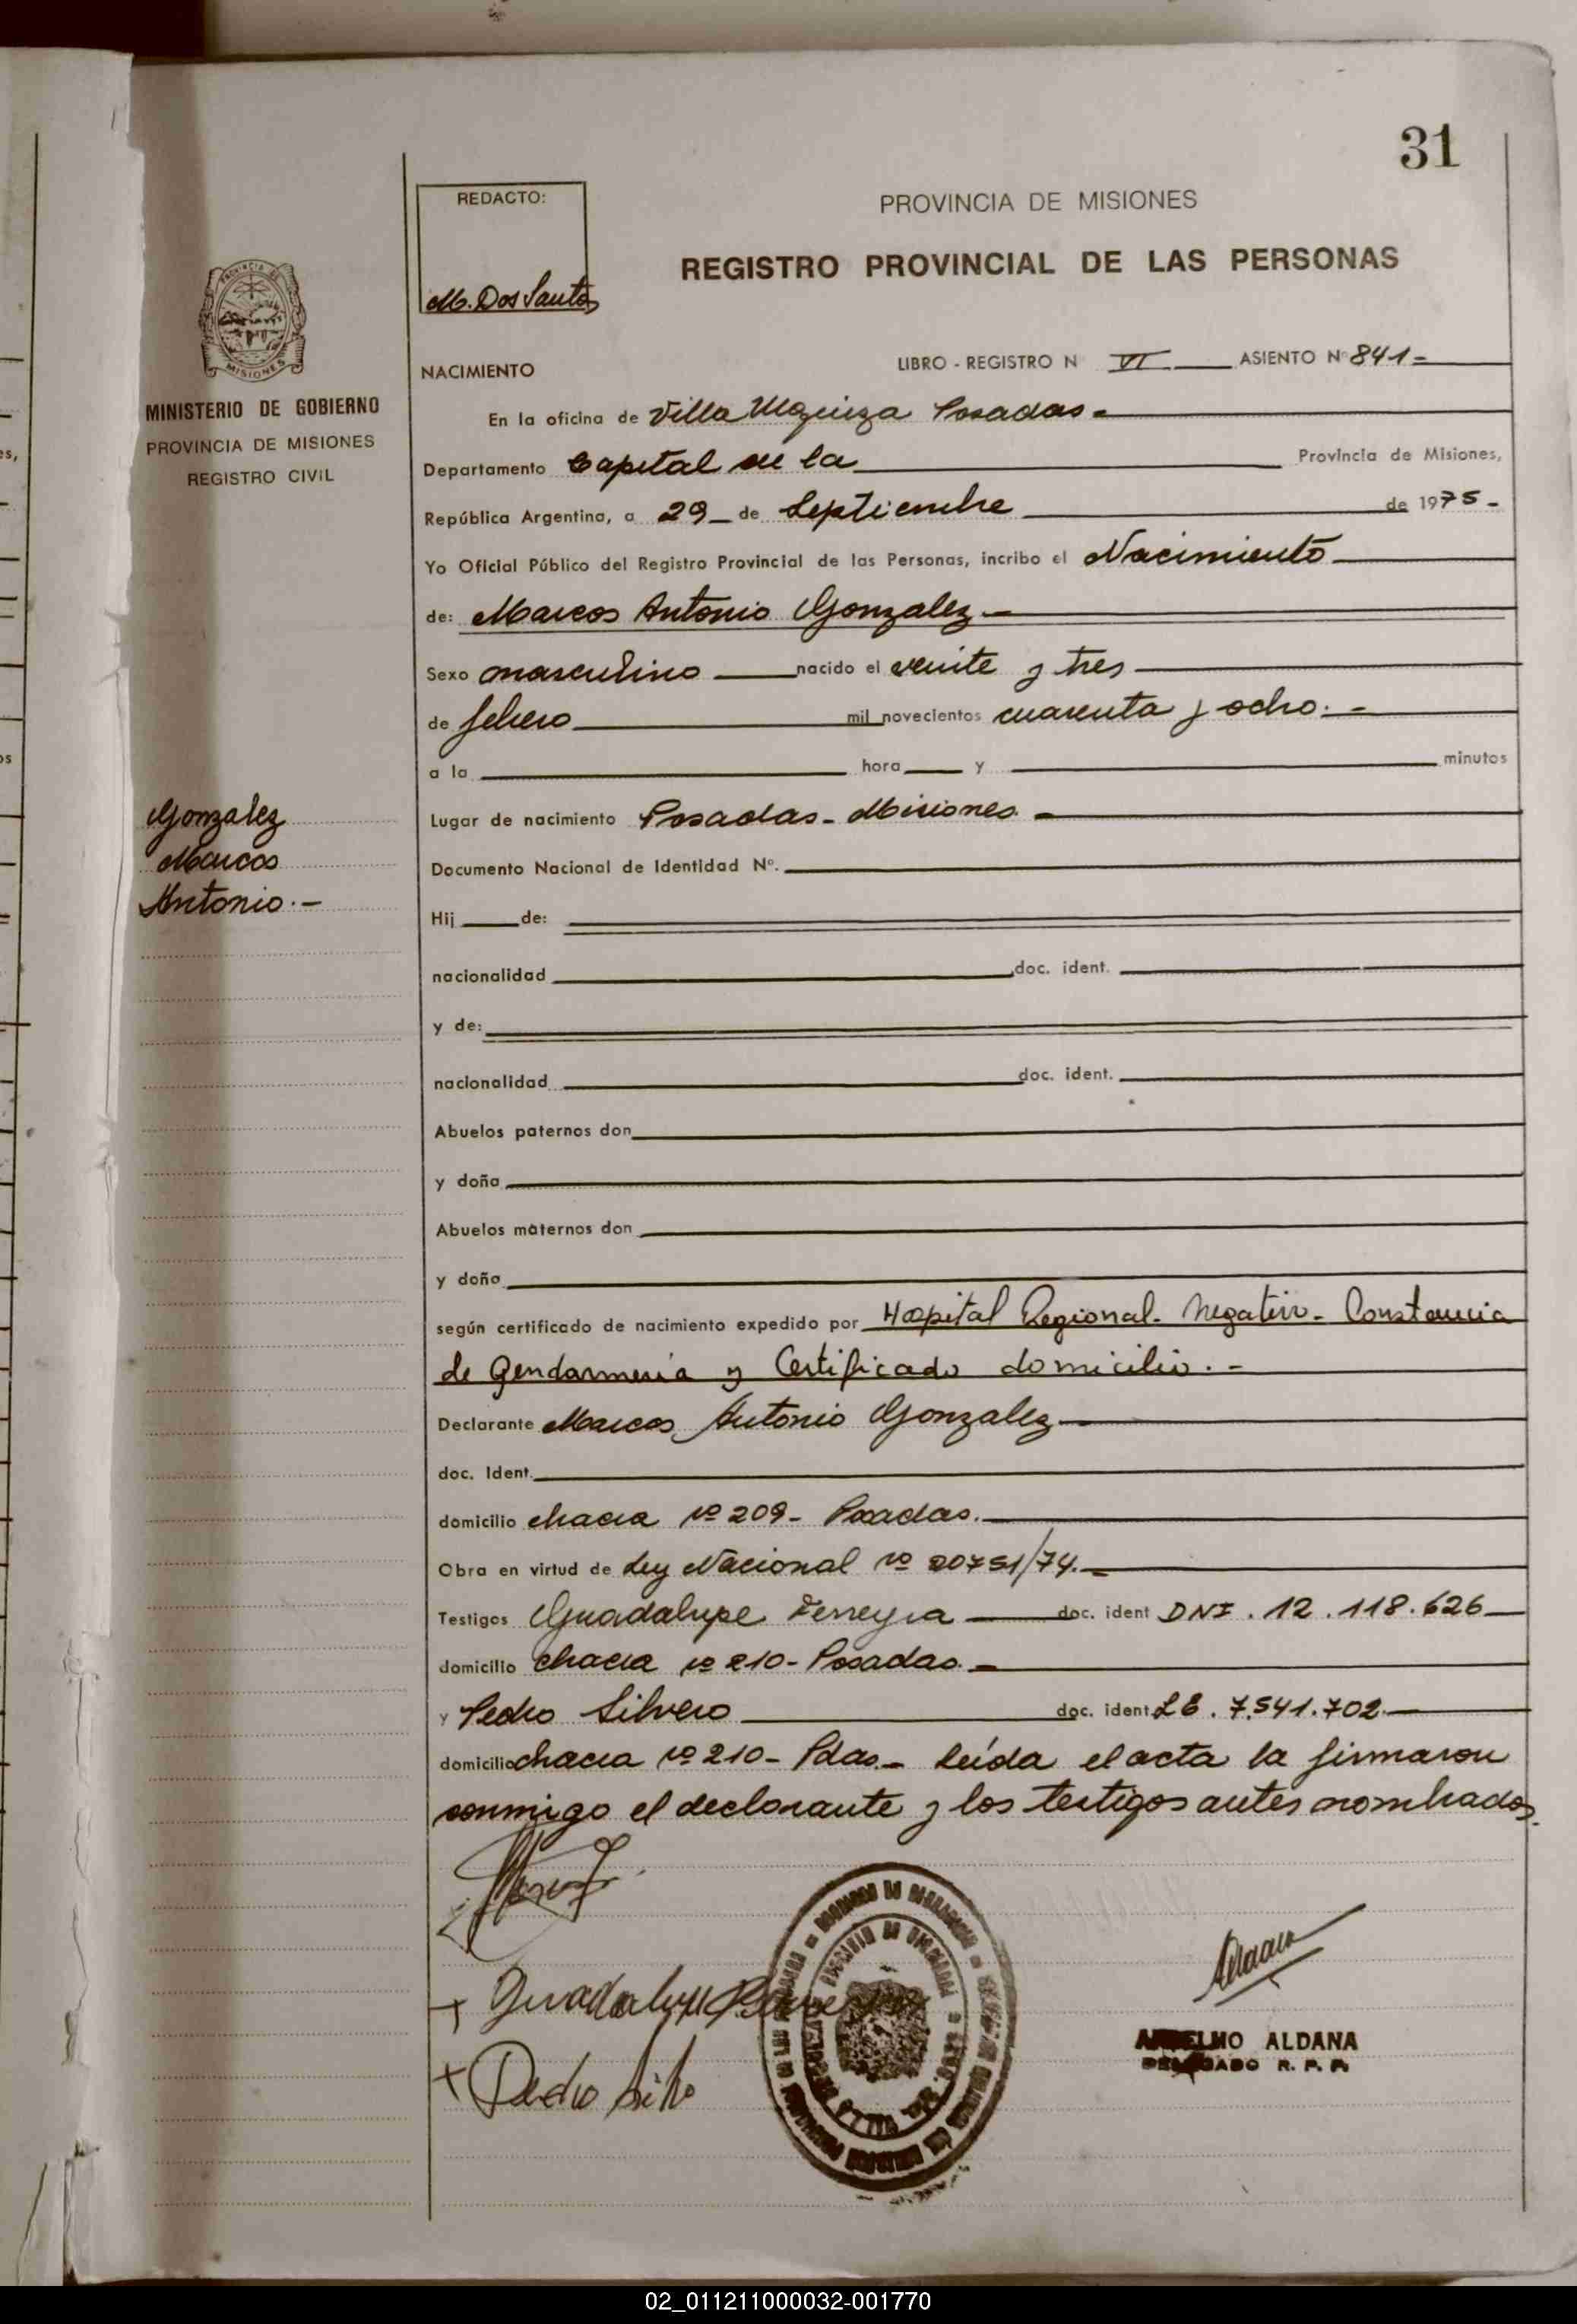 31
REDACTO:
M. Dos Santos
PROVINCIA DE MISIONES
REGISTRO PROVINCIAL DE LAS PERSONAS
PROVINCIA DE
MISIONES
MINISTERIO DE GOBIERNO
PROVINCIA DE MISIONES
REGISTRO CIVIL
NACIMIENTO LIBRO - REGISTRO N VI ASIENTO Nº 841-
En la oficina de Villa Urquiza Posadas-
Departamento Capital de la Provincia de Misiones,
República Argentina, a 29- de Septiembre de 1975-
Yo Oficial Público del Registro Provincial de las Personas, incribo el Nacimiento
de: Marcos Antonio Gonzalez.-
Sexo masculino nacido el veinte y tres
de febrero mil novecientos cuarenta y ocho.-
a la hora y minutos
Gonzalez
Marcos
Antonio.-
Lugar de nacimiento Posadas- Misiones.-
Documento Nacional de Identidad Nº.
Hij de:
nacionalidad doc. ident.
y de:
nacionalidad doc. ident.
Abuelos paternos don
y doña
Abuelos maternos don
y doña
según certificado de nacimiento expedido por Hospital Regional- Negativo- Constancia
de Gendarmeria y Certificado domicilio.-
Declarante Marcos Antonio Gonzalez
doc. Ident.
domicilio chacra nº 209- Posadas.
Obra en virtud de Ley Nacional nº 20751/74.-
Testigos Guadalupe Ferreyra doc. ident DNI. 12.118.626
domicilio chacra nº 210- Posadas.-
y Pedro Silvero doc. ident LE. 7.541.702.
domicilio chacra nº 210- Pdas.- leída el acta la firmaron
conmigo el declarante y los testigos antes nombrados.
+ Guadalupe
+ Pedro
Aldana
ANSELMO ALDANA
DELEGADO R. P. P.
02_011211000032-001770